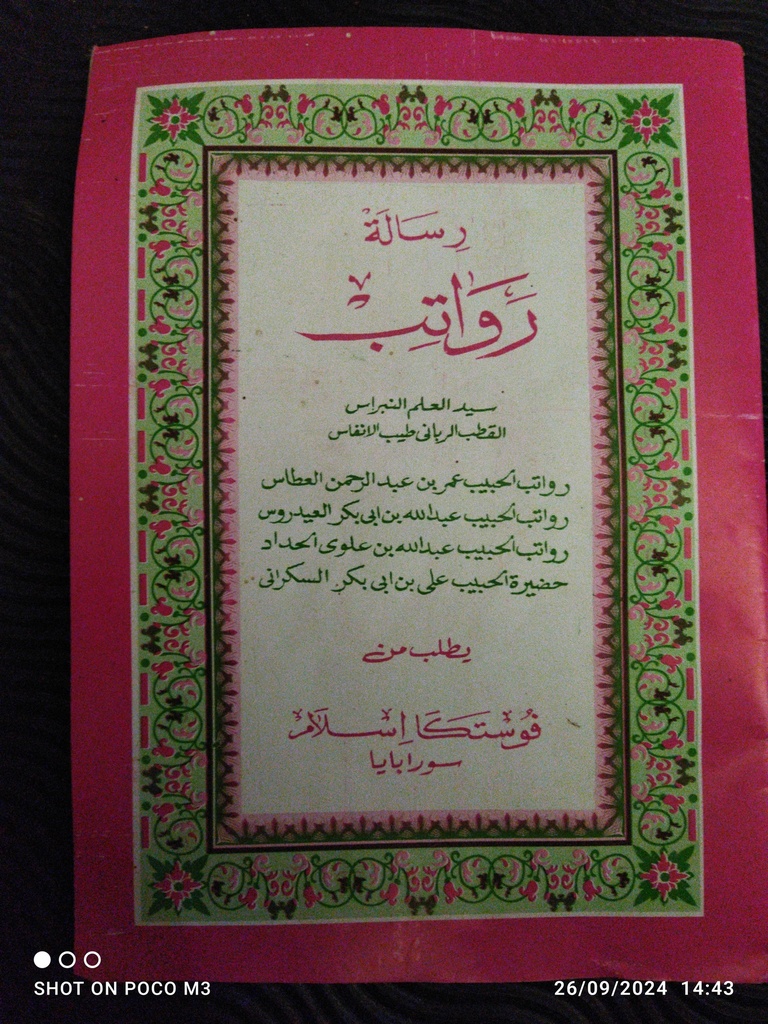 رِسَالَة
رَوَاتِبْ
سيد العلم النبراس
القطب الربانى طيب الانفاس
رواتب الحبيب عمر بن عبد الرحمن العطاس
رواتب الحبيب عبدالله بن ابى بكر العيدروس
رواتب الحبيب عبدالله بن علوى الحداد
حضيرة الحبيب على بن ابى بكر السكرانى
يطلب من
فُوْسْتَكَا اِسْلَامْ
سورابايا
SHOT ON POCO M3
26/09/2024 14:43